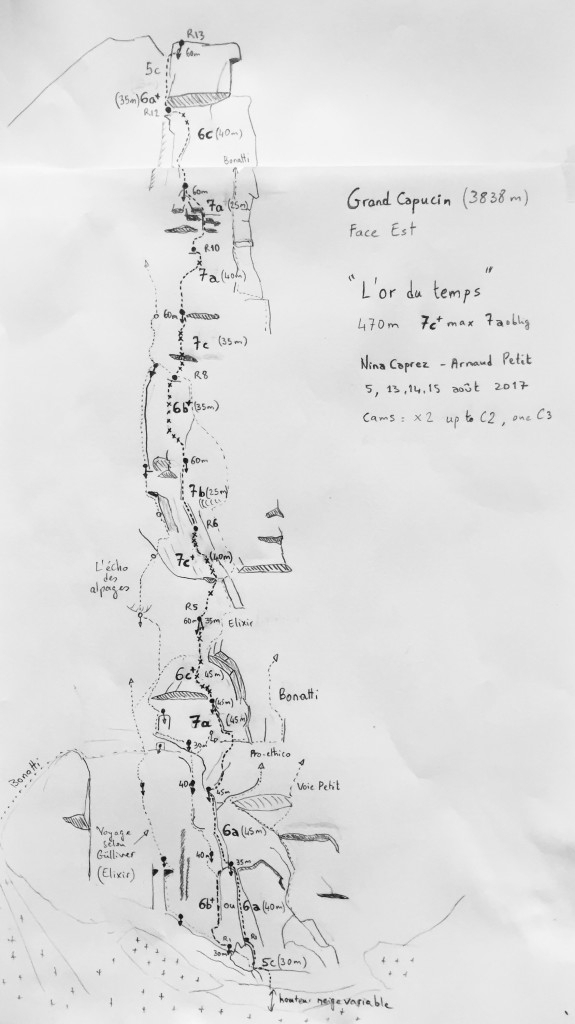 R13
60m
5c
(35m) 6a+
R12
6c (40m)
Bonatti
60m
7a (25m)
Grand Capucin (3838m)
Face Est
R10
7a (40m)
"L'or du temps"
470m 7c+ max 7a oblig
60m
7c (35m)
Nina Caprez - Arnaud Petit
5, 13, 14, 15 août 2017
Cams : x2 up to C2, one C3
R8
6b+ (35m)
60m
7b (25m)
R6
7c+ (40m)
L'écho
des
alpages
R5
60m 35m Elixir
6c+ 45m
(45m)
Bonatti
7a (45m)
30m
Pro-ethico
Bonatti
40m 45m
Voie Petit
Voyage
selon
Gülliver
(Elixir)
6a (45m)
40m 35m
6b+ ou 6a (40m)
R1
30m
5c (30m)
hauteur neige variable